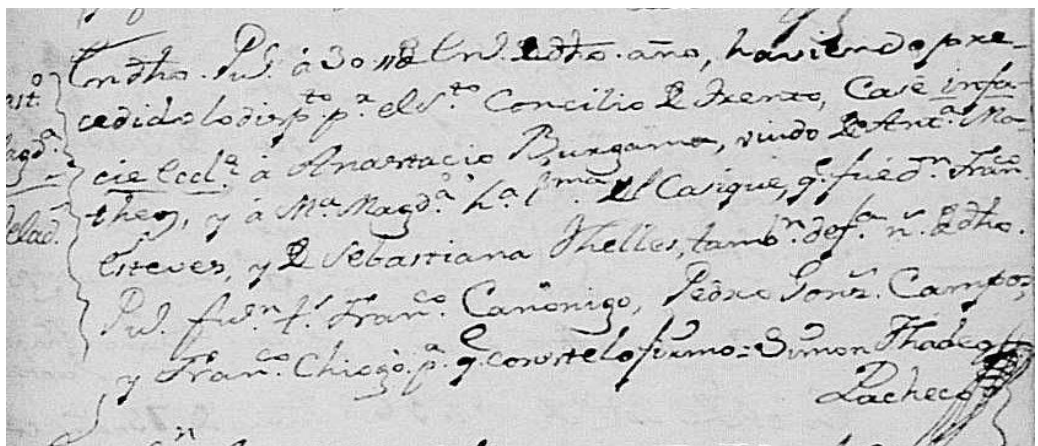 En dho. Pu.º á 30 de En.º de dho. año, haviendo pre-
cedido lo disp.to p.r el S.to Concilio de Trento, Casé infa-
cie Eccl.a á Anastacio Burgama, viudo de Ant.a Ma-
theo, y á M.a Magd.a h.a l.ma del Casique, q.e fué d.n Fran.co
Esteves, y de Sebastiana Thelles, tamb.n def.a n.s de dho.
Pu.º fu.n t.s Fran.co Canònigo, Pedro Gonz.s Campos,
y Fran.co Chiego. p.a q.e conste lo firmo = Simon Thadeo
Pacheco